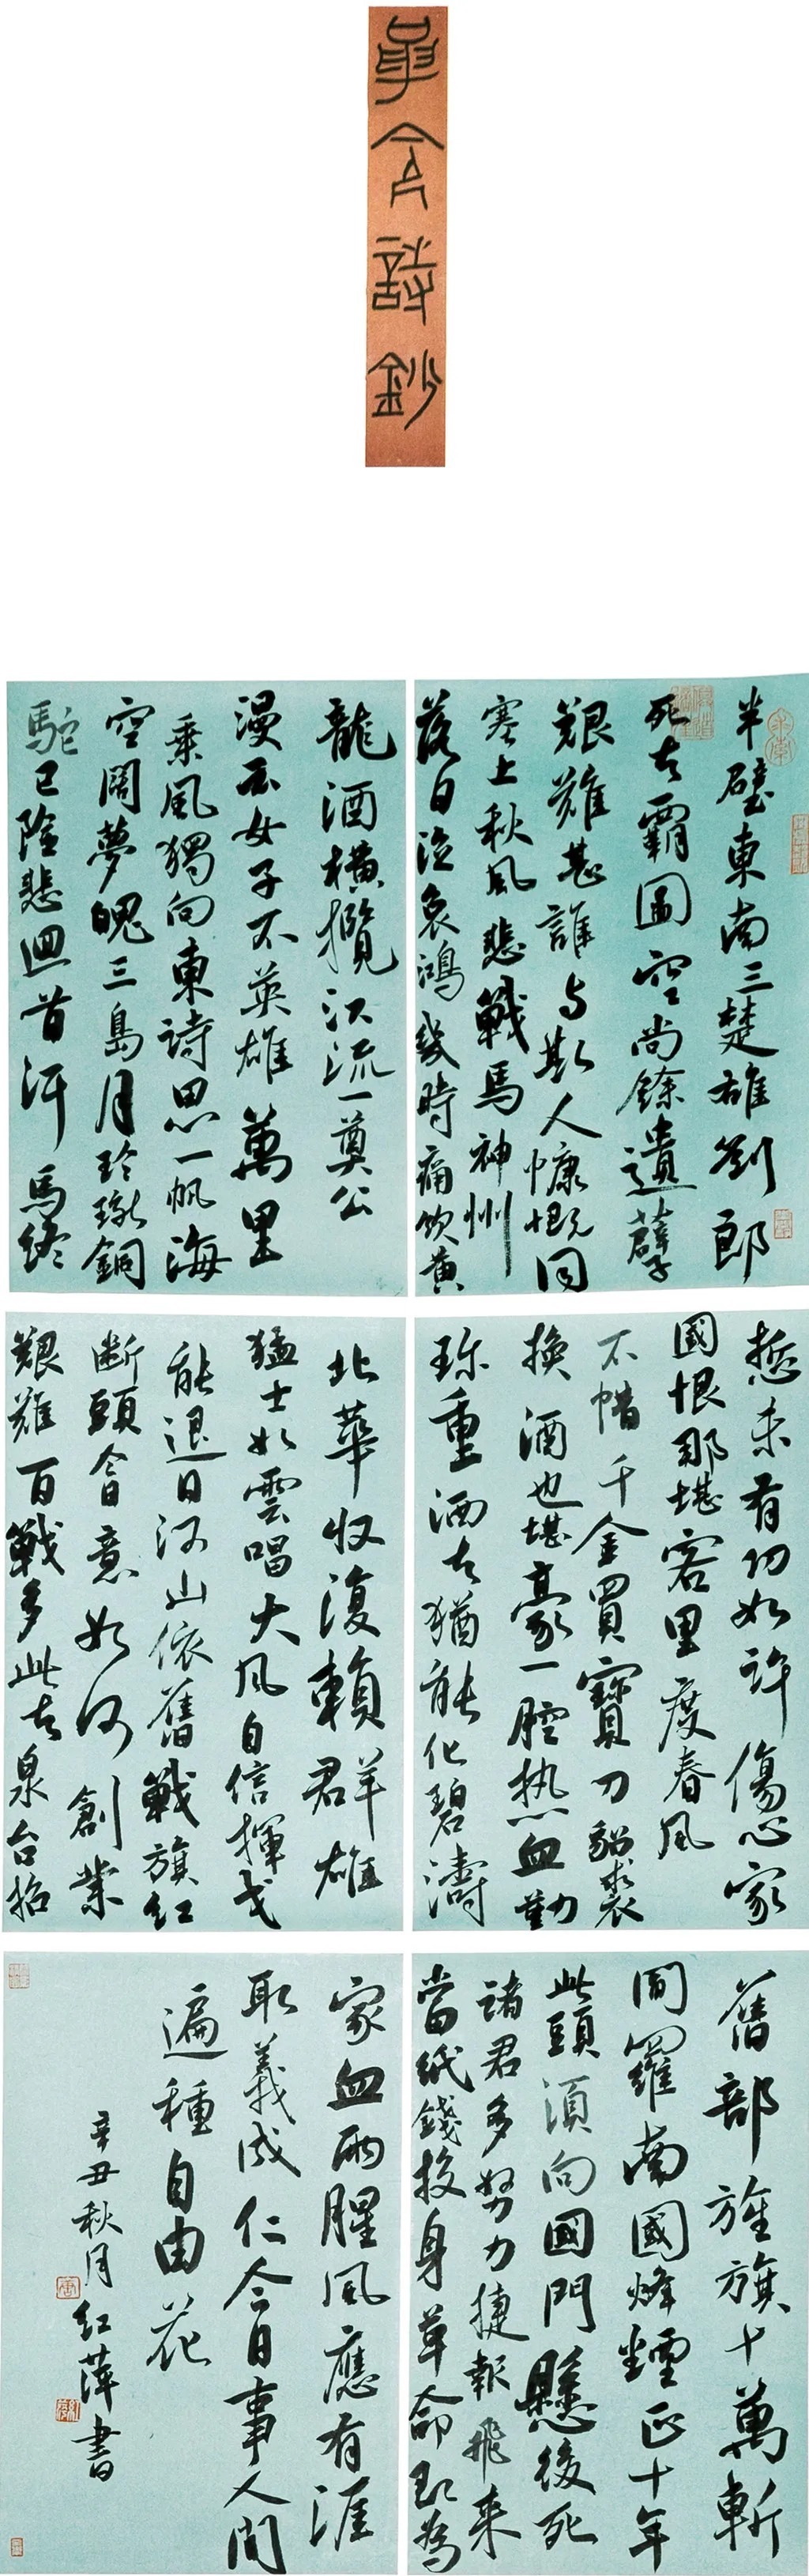 詩鈔
半壁東南三楚雄劉郎
死去霸圖空尚餘遺孽
艱難甚誰与斯人慷慨同
塞上秋風悲戰馬神州
落日泣哀鴻幾時痛飲黃
龍酒橫攬江流一奠公
漫云女子不英雄萬里
乘風獨向東詩思一帆海
空闊夢魂三島月玲瓏銅
駝已陷悲迴首汗馬終
慙未有功如許傷心家
國恨那堪客里度春風
不惜千金買寶刀貂裘
換酒也堪豪一腔热血勤
珍重洒去猶能化碧濤
北華收復賴群雄
猛士如雲唱大風自信揮戈
能退日河山依舊戰旗紅
斷頭今日意如何創業
艱難百戰多此去泉台招
舊部旌旗十萬斬
閻羅南國烽煙正十年
此頭須向國門懸後死
諸君多努力捷報飛来
當紙錢投身革命即為
家血雨腥風應有涯
取義成仁今日事人間
遍種自由花
辛丑秋月红萍書